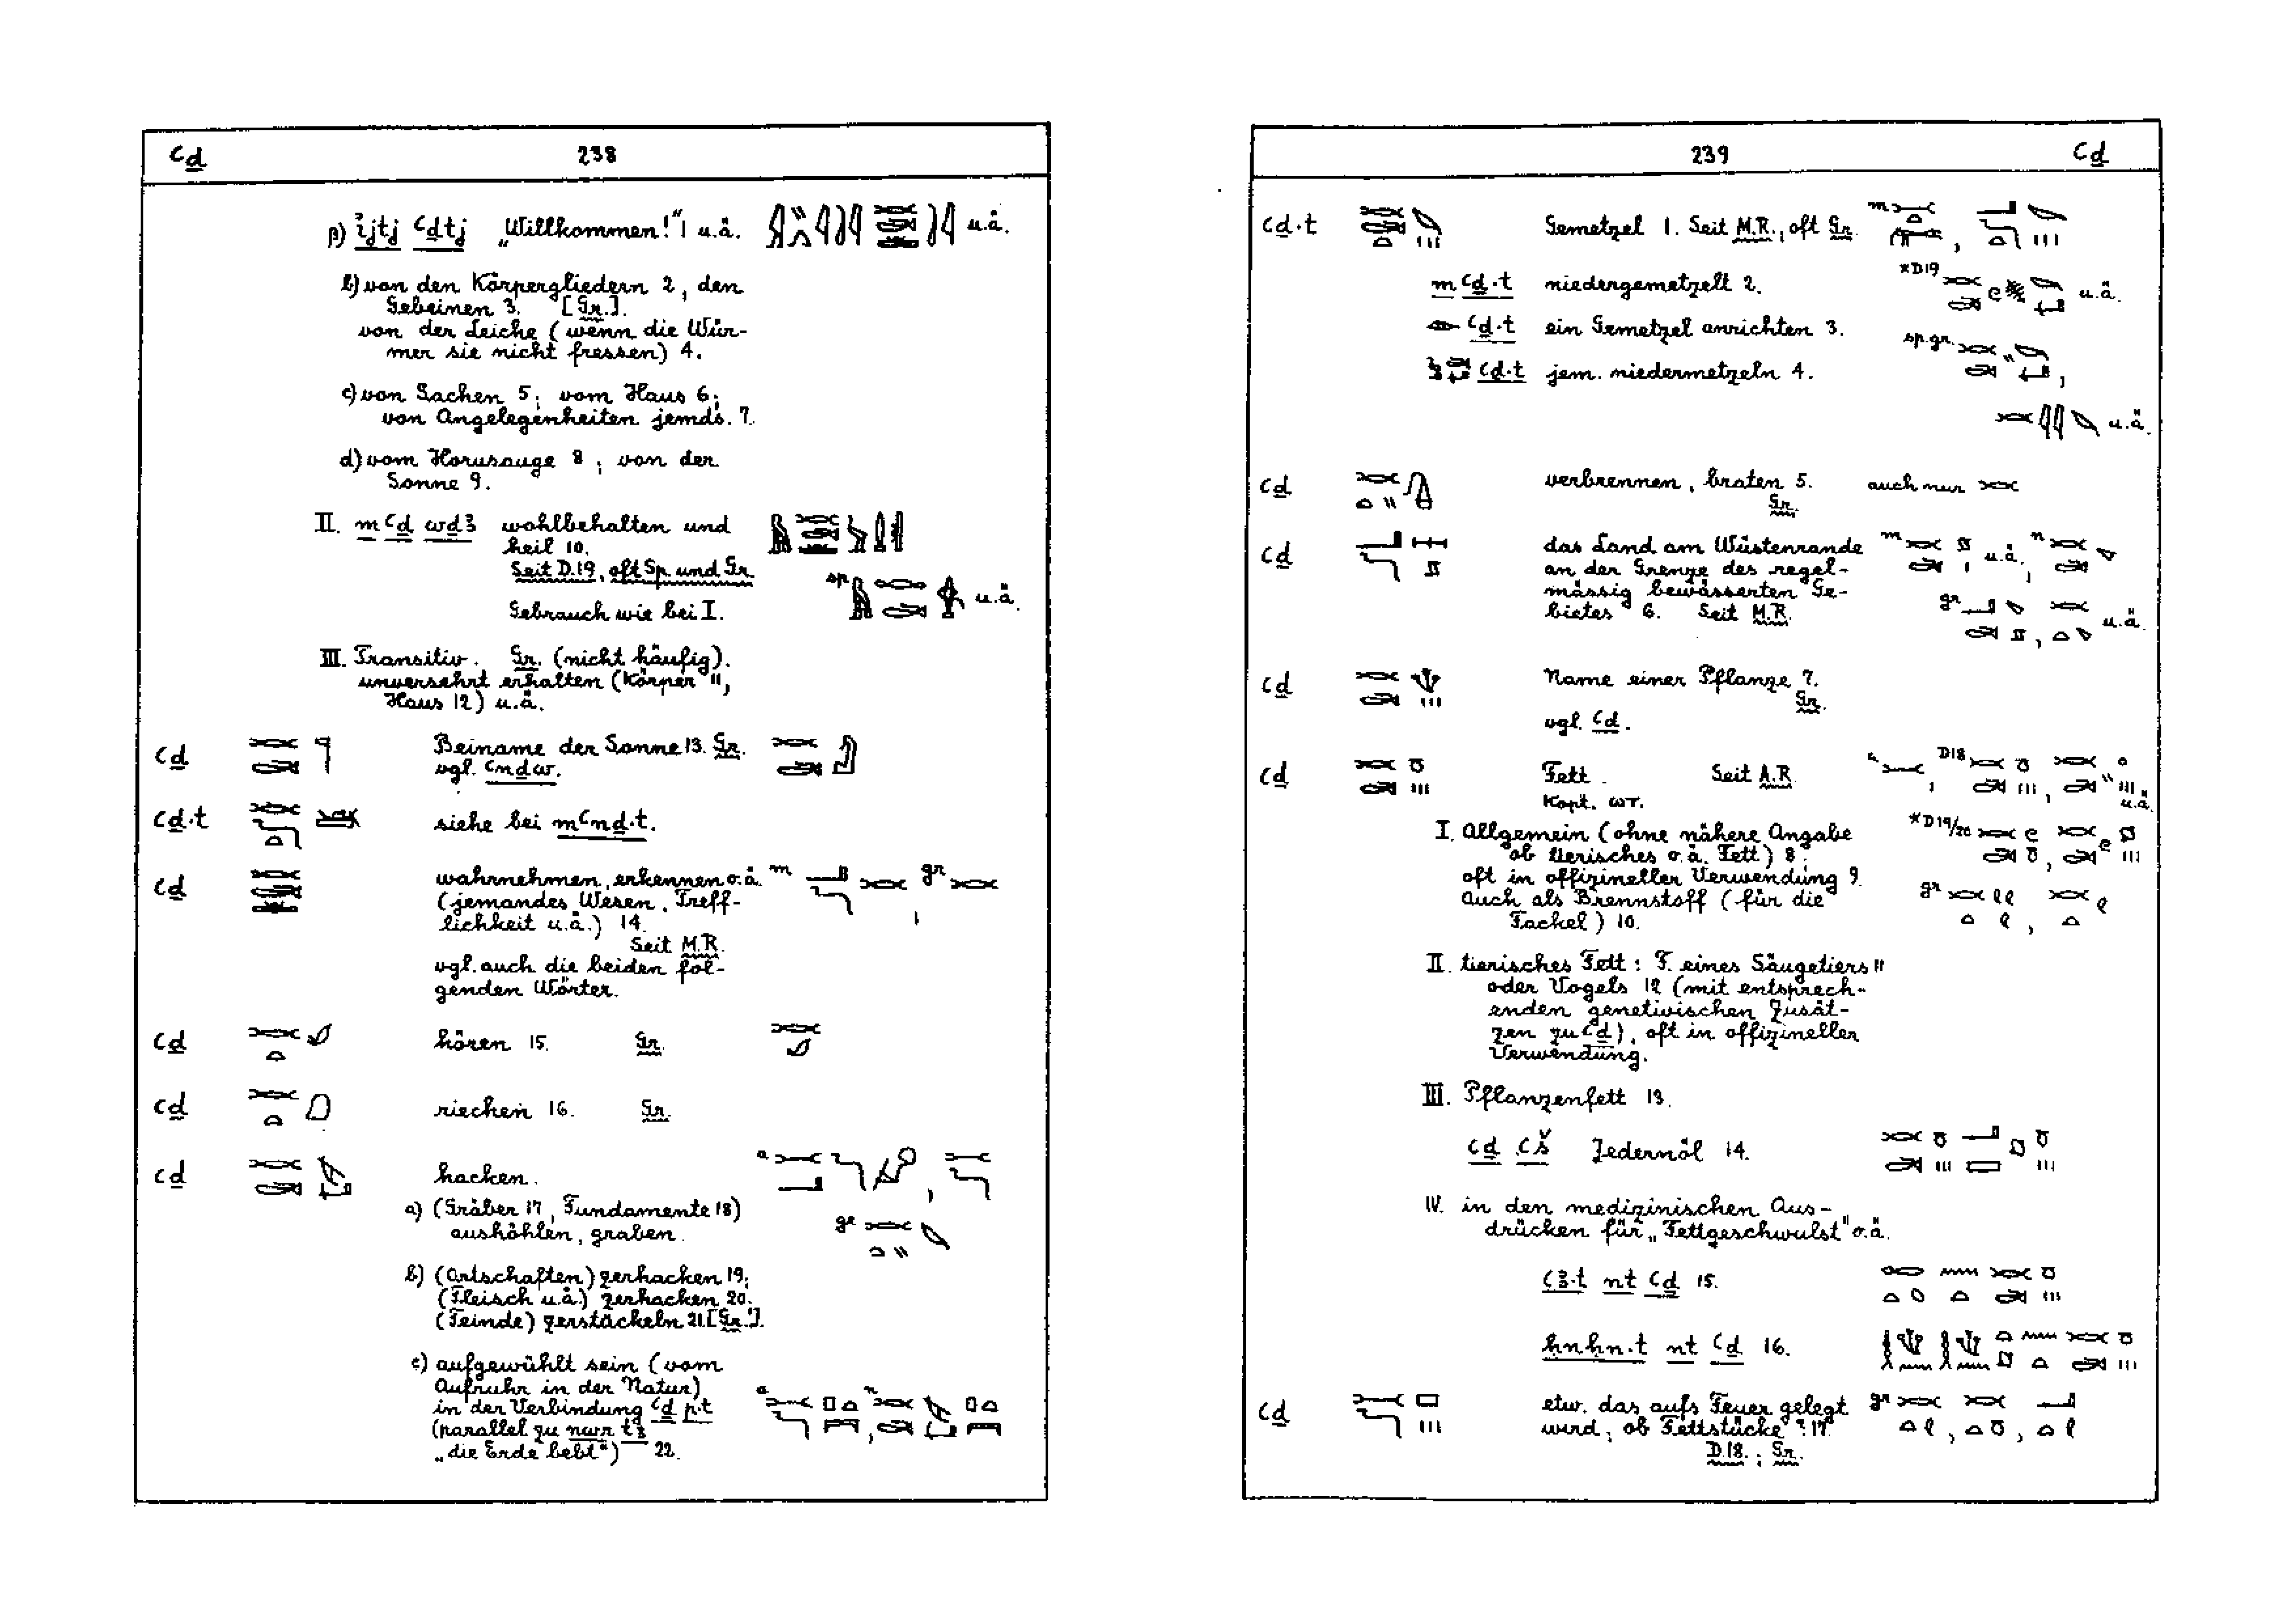 ꜥḏ 238
β) ı͗jtj ꜥḏtj „Willkommen!" 1 u.ä. u.ä.
b) von den Körpergliedern 2, den
Gebeinen 3. [Gr.].
von der Leiche (wenn die Wür-
mer sie nicht fressen) 4.
c) von Sachen 5; vom Haus 6;
von Angelegenheiten jemds. 7.
d) vom Horusauge 8; von der
Sonne 9.
II. m ꜥḏ wḏꜣ wohlbehalten und
heil 10.
Seit D.19, oft Sp. und Gr.
sp u.ä.
Gebrauch wie bei I.
III. Transitiv. Gr. (nicht häufig).
unversehrt erhalten (Körper 11,
Haus 12) u.ä.
ꜥḏ Beiname der Sonne 13. Gr.
vgl. ꜥnḏw.
ꜥḏ·t siehe bei mꜥnḏ·t.
ꜥḏ wahrnehmen, erkennen o.ä. m , gr
(jemandes Wesen, Treff-
lichkeit u.ä.) 14.
Seit M.R.
vgl. auch die beiden fol-
genden Wörter.
ꜥḏ hören 15. Gr.
ꜥḏ riechen 16. Gr.
ꜥḏ hacken. a ,
a) (Gräber 17, Fundamente 18)
aushöhlen, graben. gr
b) (Ortschaften) zerhacken 19;
(Fleisch u.ä.) zerhacken 20.
(Feinde) zerstückeln 21. [Gr.].
c) aufgewühlt sein (vom
Aufruhr in der Natur)
in der Verbindung ꜥḏ p·t a , n
(parallel zu nwr tꜣ
„die Erde bebt") 22.
239 ꜥḏ
ꜥḏ·t Gemetzel 1. Seit M.R., oft Gr. m ,
m ꜥḏ·t niedergemetzelt 2. *D19 u.ä.
ꜥḏ·t ein Gemetzel anrichten 3.
ꜥḏ·t jem. niedermetzeln 4. sp.gr. ,
u.ä.
ꜥḏ verbrennen, braten 5. auch nur
Gr.
ꜥḏ das Land am Wüstenrande m u.ä., n
an der Grenze des regel-
mässig bewässerten Ge-
bietes 6. Seit M.R. gr , u.ä.
ꜥḏ Name einer Pflanze 7.
Gr.
vgl. ꜥḏ.
ꜥḏ Fett. Seit A.R. a , D18 , u.ä.
Kopt. ⲱⲧ.
I. Allgemein (ohne nähere Angabe *D19/20 ,
ob tierisches o.ä. Fett) 8;
oft in offizineller Verwendung 9.
Auch als Brennstoff (für die gr ,
Fackel) 10.
II. tierisches Fett: F. eines Säugetiers 11
oder Vogels 12 (mit entsprech-
enden genetivischen Zusät-
zen zu ꜥḏ), oft in offizineller
Verwendung.
III. Pflanzenfett 13.
ꜥḏ ꜥš Zedernöl 14.
IV. in den medizinischen Aus-
drücken für „Fettgeschwulst" o.ä.
ꜥꜣ·t nt ꜥḏ 15.
ḥnḥn·t nt ꜥḏ 16.
ꜥḏ etw. das aufs Feuer gelegt gr , ,
wird; ob „Fettstücke"? 17.
D.18.; Gr.